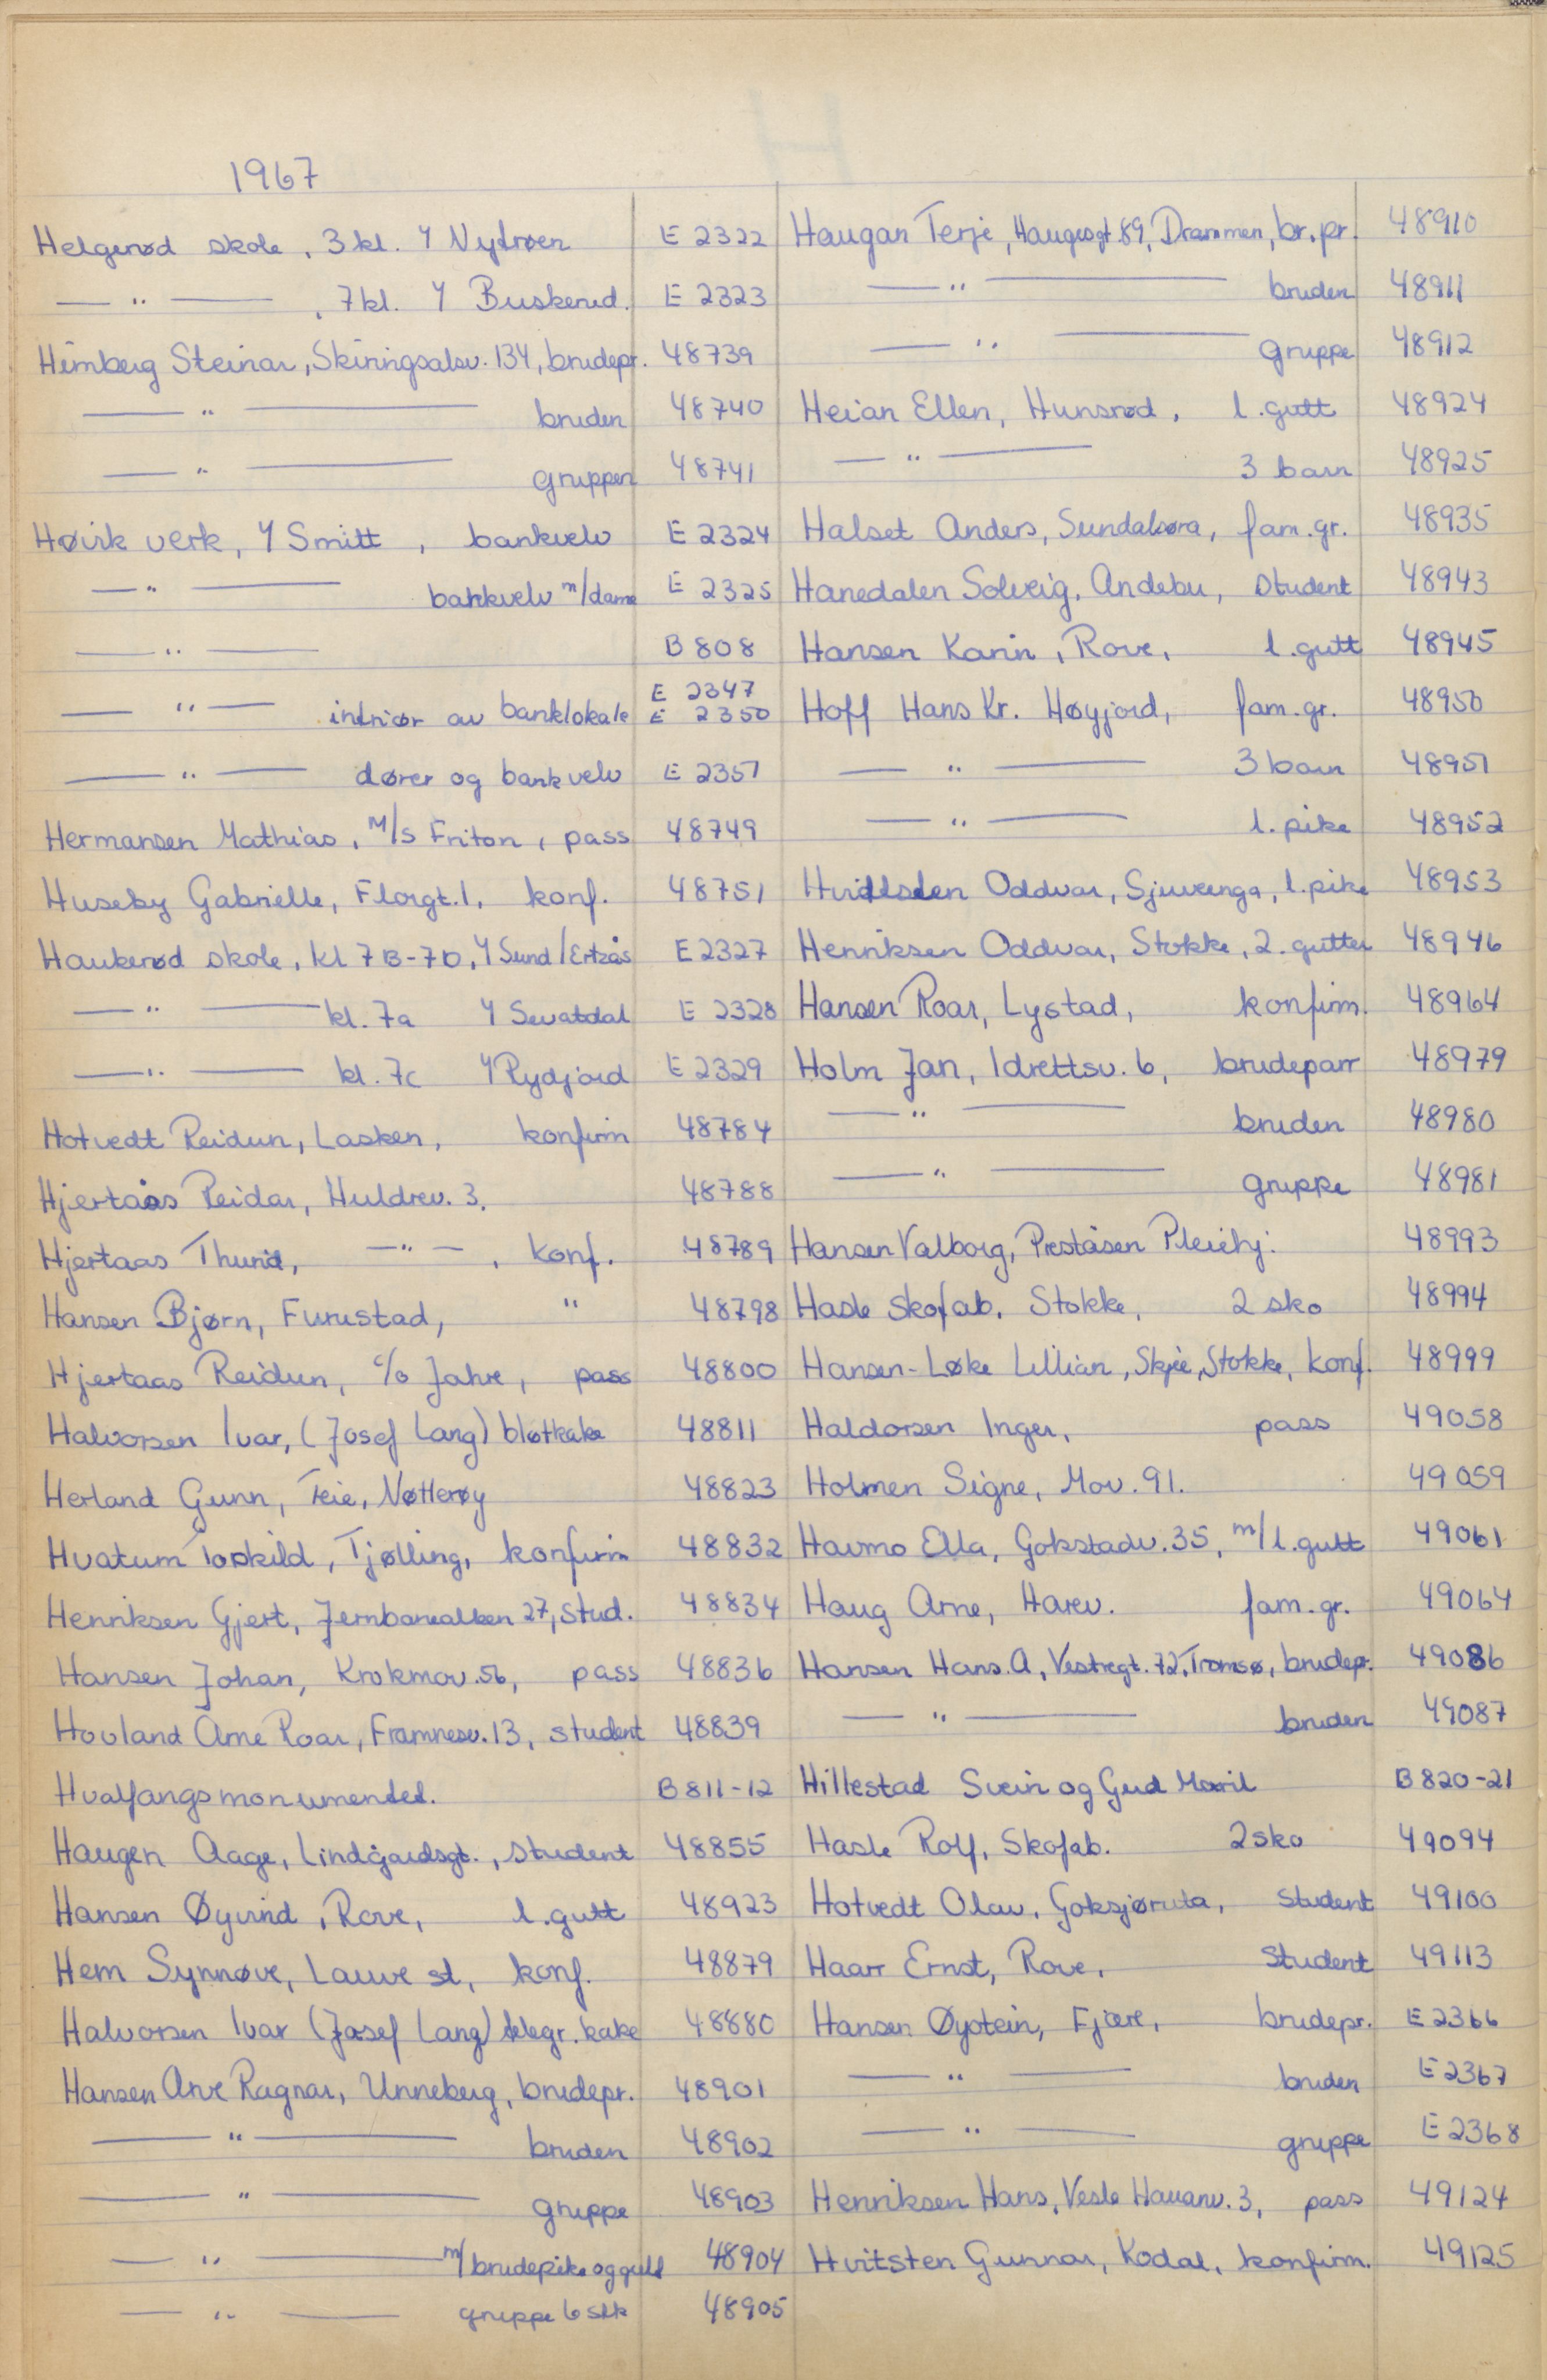 1967
Helgerød skole, 3 kl. v/ Nytrøen E 2322
— " — , 7 kl. v/ Buskerud. E 2323
Heimberg Steinar, Skiringsalsv. 134, brudepr. 48739
— " — bruden 48740
— " — gruppen 48741
Høvik verk, v/ Smitt, bankvelv E 2324
— " — bankvelv m/dame E 2325
— " — B 808
— " — intriør av banklokale E 2347 E 2350
— " — dører og bankvelv E 2351
Hermansen Mathias, M/S Friton, pass 48749
Huseby Gabrielle, Florgt. 1, konf. 48751
Haukerød skole, kl 7B-7D, v/ Sund/Ertzås E 2327
— " — kl. 7a v/ Sevatdal E 2328
— " — kl. 7c v/ Rydjord E 2329
Hotvedt Reidun, Lasken, konfirm 48784
Hjertaas Reidar, Huldrev. 3. 48788
Hjertaas Thurid, — " — , konf. 48789
Hansen Bjørn, Furustad, " 48798
Hjertaas Reidun, c/o Jahre, pass 48800
Halvorsen Ivar, (Josef Lang) bløtkake 48811
Herland Gunn, Teie, Nøtterøy 48823
Hvatum Torkild, Tjølling, konfirm 48832
Henriksen Gjert, Jernbanealleen 27, stud. 48834
Hansen Johan, Krokmov. 56, pass 48836
Hovland Arne Roar, Framnesv. 13, student 48839
Hvalfangsmonumentet. B 811-12
Haugen Aage, Lindgaardsgt., student 48855
Hansen Øyvind, Rove, l. gutt 48923
Hem Synnøve, Lauve st, konf. 48879
Halvorsen Ivar (Josef Lang) telegr. kake 48880
Hansen Arve Ragnar, Unneberg, brudepr. 48901
— " — bruden 48902
— " — gruppe 48903
— " — m/ brudepike og gutt 48904
— " — gruppe 6 stk 48905
Haugan Terje, Haugesgt. 89, Drammen, br.pr. 48910
— " — bruden 48911
— " — gruppe 48912
Heian Ellen, Hunsrød, l. gutt 48924
— " — 3 barn 48925
Halset Anders, Sundalsøra, fam. gr. 48935
Hanedalen Solveig, Andebu, student 48943
Hansen Karin, Rove, l. gutt 48945
Hoff Hans Kr. Høyjord, fam. gr. 48950
— " — 3 barn 48951
— " — l. pike 48952
Oddvar, Sjuvenga, l. pike 48953
Henriksen Oddvar, Stokke, 2. gutter 48946
Hansen Roar, Lystad, konfirm. 48964
Holm Jan, Idrettsv. 6, brudeparr 48979
— " — bruden 48980
— " — gruppe 48981
Hansen Valborg, Preståsen Pleiehj. 48993
Hasle Skofab. Stokke, 2 sko 48994
Hansen-Løke Lillian, Skjee, Stokke, konf. 48999
Haldorsen Inger, pass 49058
Holmen Signe, Mov. 91. 49059
Havmo Ella, Gokstadv. 35, m/ l. gutt 49061
Haug Arne, Harev. fam. gr. 49064
Hansen Hans. A, Vestregt. 72, Tromsø, brudepr. 49086
— " — bruden 49087
Hillestad Svein og Gud B 820-21
Hasle Rolf, Skofab. 2 sko 49094
Hotvedt Olav, Goksjøruta, student 49100
Haarr Ernst, Rove, student 49113
Hansen Øystein, Fjære, brudepr. E 2366
— " — bruden E 2367
— " — gruppe E 2368
Henriksen Hans, Vesle Hauanv. 3, pass 49124
Hvitsten Gunnar, Kodal, konfirm. 49125